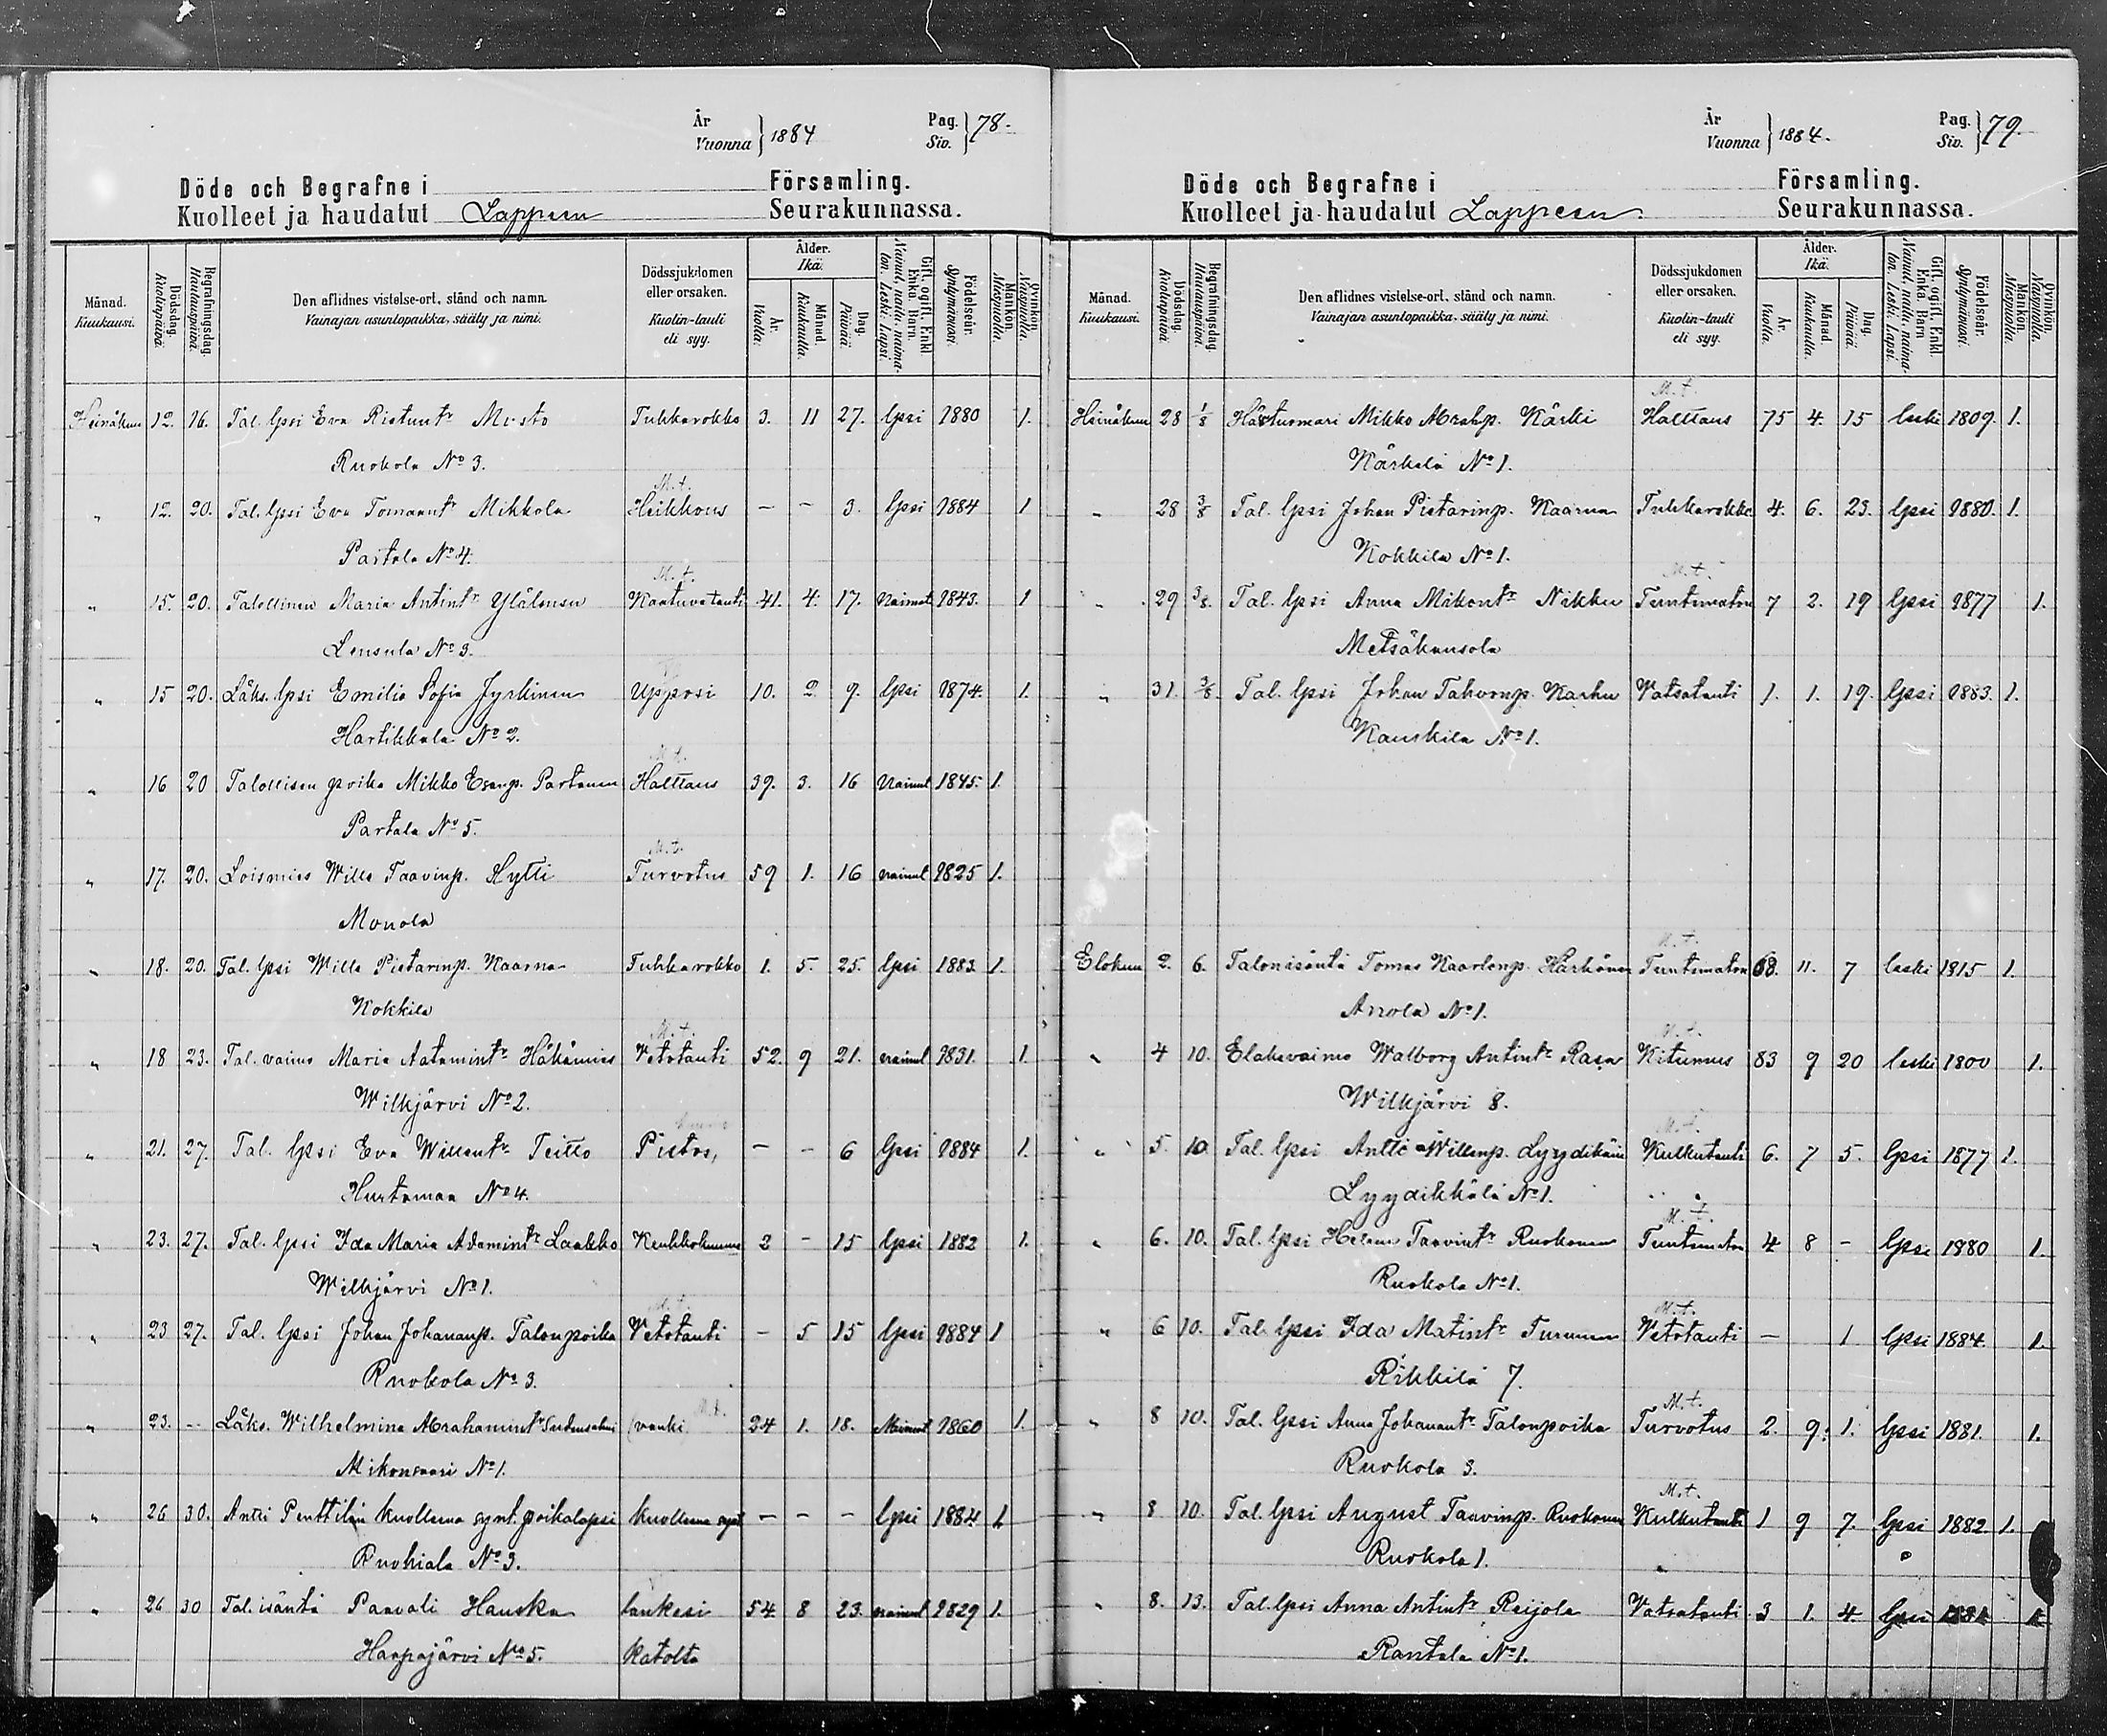 År
Vuonna } 1884
Pag.
Siv. } 78.
Döde och Begrafne i Församling.
Kuolleet ja haudatut Lappeen Seurakunnassa.
Månad. Kuukausi.
Dödsdag. Kuolinpäivä.
Begrafningsdag. Hautauspäivä.
Den aflidnes vistelse-ort, stånd och namn.
Vainajan asuntopaikka, sääty ja nimi.
Dödssjukdomen eller orsaken.
Kuolin-tauti eli syy.
Ålder. Ikä.
År. Vuotta.
Månad. Kuukautta.
Dag. Päivää.
Gift, ogift, Enkl. Enka, Barn. Nainut, naitu, naimaton, Leski, Lapsi.
Födelseår. Syntymävuosi.
Mankön. Miespuolia.
Qvinkön. Naispuolia.
Heinäkuu 12. 16. Tal. lpsi Eva Ristunt. Musto Tuhkarokko 3. 11 27. lpsi 1880 1.
Ruokola No 3.
M.t.
" 12. 20. Tal. lpsi Eva Tomaant. Mikkola Heikkous — — 3. lpsi 1884 1
Partala No 4.
M.t.
" 15. 20. Talollinen Maria Antint. Ylälensu Kaatuvatauti 41. 4. 17. Naimat 1843. 1
Lensula No 3.
" 15 20. Läks. lpsi Emilia Sofia Jyrkinen Upposi 10. 2 9. lpsi 1874. 1.
Hartikkala No 2.
M.t.
" 16 20 Talollisen poika Mikko Esanp. Partanen Halttaus 39. 3. 16 Nainut 1845. 1.
Partala No 5.
M.t.
" 17. 20. Loismies Wille Taavinp. Hytti Turvotus 59 1. 16 nainut 1825 1.
Monola
" 18. 20. Tal. lpsi Wille Pietarinp. Kaarna Tuhkarokko 1. 5. 25. lpsi 1883. 1.
Kokkila
M.t.
" 18 23. Tal. vaimo Maria Aatamint. Häkämies Vetotauti 52. 9 21. nainut 1831. 1.
Wilkjärvi No 2.
" 21. 27. Tal. lpsi Eva Willent. Teitto Pistos, — — 6 lpsi 1884 1.
Hurtamaa No 4.
" 23. 27. Tal. lpsi Ida Maria Adamint. Laakko Keuhkokuume 2 — 15 lpsi 1882 1.
Wilkjärvi No 1.
M.t.
" 23 27. Tal. lpsi Johan Johananp. Talonpoika Vetotauti — 5 15 lpsi 1884 1
Ruokola No 3.
M.t.
" 23. — Läks. Wilhelmina Abrahamint. (vanki 24 1. 18. Nainut 1860 1.
Mikonsaari No 1.
" 26 30. Antti Penttilän kuollena synt. poikalapsi kuollena synt — — — lpsi 1884 1
Ruohiala No 3.
" 26 30 Tal. isäntä Paavali Hauska lankesi 54 8 23. nainut 1829 1.
Haapajärvi No 5. katolta
År
Vuonna } 1884.
Pag.
Siv. } 79.
Döde och Begrafne i Församling.
Kuolleet ja haudatut Lappeen Seurakunnassa.
Månad. Kuukausi.
Dödsdag. Kuolinpäivä.
Begrafningsdag. Hautauspäivä.
Den aflidnes vistelse-ort, stånd och namn.
Vainajan asuntopaikka, sääty ja nimi.
Dödssjukdomen eller orsaken.
Kuolin-tauti eli syy.
Ålder. Ikä.
År. Vuotta.
Månad. Kuukautta.
Dag. Päivää.
Gift, ogift, Enkl. Enka, Barn. Nainut, naitu, naimaton, Leski, Lapsi.
Födelseår. Syntymävuosi.
Mankön. Miespuolia.
Qvinkön. Naispuolia.
M.t.
Heinäkuu 28 1/8 Mikko Abrahp. Kärki Halttaus 75 4. 15 leski 1809. 1.
Kärkelä No 1.
" 28 3/8 Tal. lpsi Johan Pietarinp. Kaarna Tuhkarokko 4. 6. 23. lpsi 1880. 1.
Kokkila No 1.
M.t.
" 29 3/8. Tal. lpsi Anna Mikont. Nikku Tuntematon 7 2. 19 lpsi 1877 1.
Metsäkansola
" 31. 3/8. Tal. lpsi Johan Tahvonp. Karhu Vatsatauti 1. 1. 19. lpsi 1883. 1.
Kauskila No 1.
M.t.
Elokuu 2. 6. Talonisäntä Tomas Kaarlonp. Härkönen Tuntematon 68. 11. 7 leski 1815 1.
Arrola No 1.
M.t.
" 4 10. Elakevaimo Walborg Antint. Rasa Kitumus 83 9 20 leski 1800 1.
Wilkjärvi 8.
M.t.
" 5. 10. Tal. lpsi Antti Willenp. Lyyydikäin Kulkutauti 6. 7 5. lpsi 1877 1.
Lyydikkälä No 1.
M.t.
" 6. 10. Tal. lpsi Helena Taavint. Ruokonen Tuntematon 4 8 — lpsi 1880 1.
Ruokola No 1.
M.t.
" 6 10. Tal. lpsi Ida Matint. Turunen Vetotauti — 1 lpsi 1884. 1.
Rikkilä 7.
M.t.
" 8 10. Tal. lpsi Anna Johanant. Talonpoika Turvotus 2. 9. 1. lpsi 1881. 1.
Ruokola 3.
M.t.
" 8 10. Tal. lpsi August Taavinp. Ruokonen Kulkutauti 1 9 7. lpsi 1882 1.
Ruokola 1.
" 8. 13. Tal. lpsi Anna Antint. Reijola Vatsatauti 3 1. 4. lpsi 1881 1.
Rantala No 1.